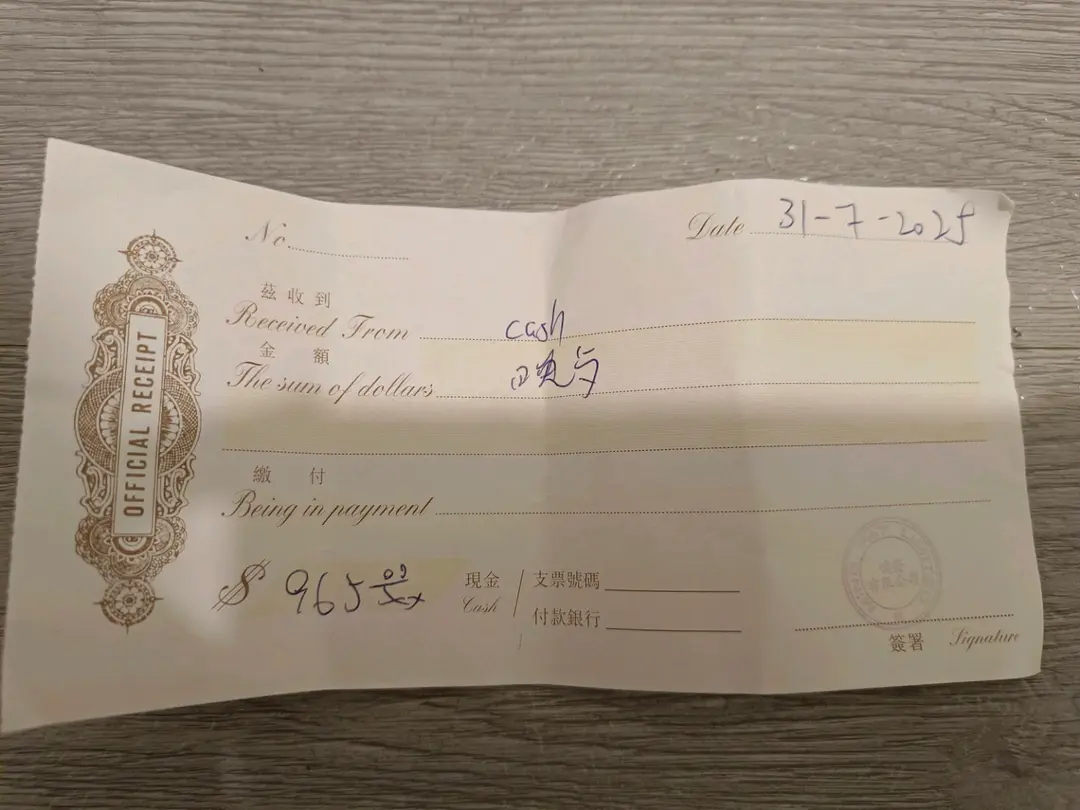 No. Date 31-7-2025
OFFICIAL RECEIPT
茲收到
Received From cash
金額
The sum of dollars
繳付
Being in payment
$ 965 00 現金 支票號碼
Cash
付款銀行
簽署 Signature